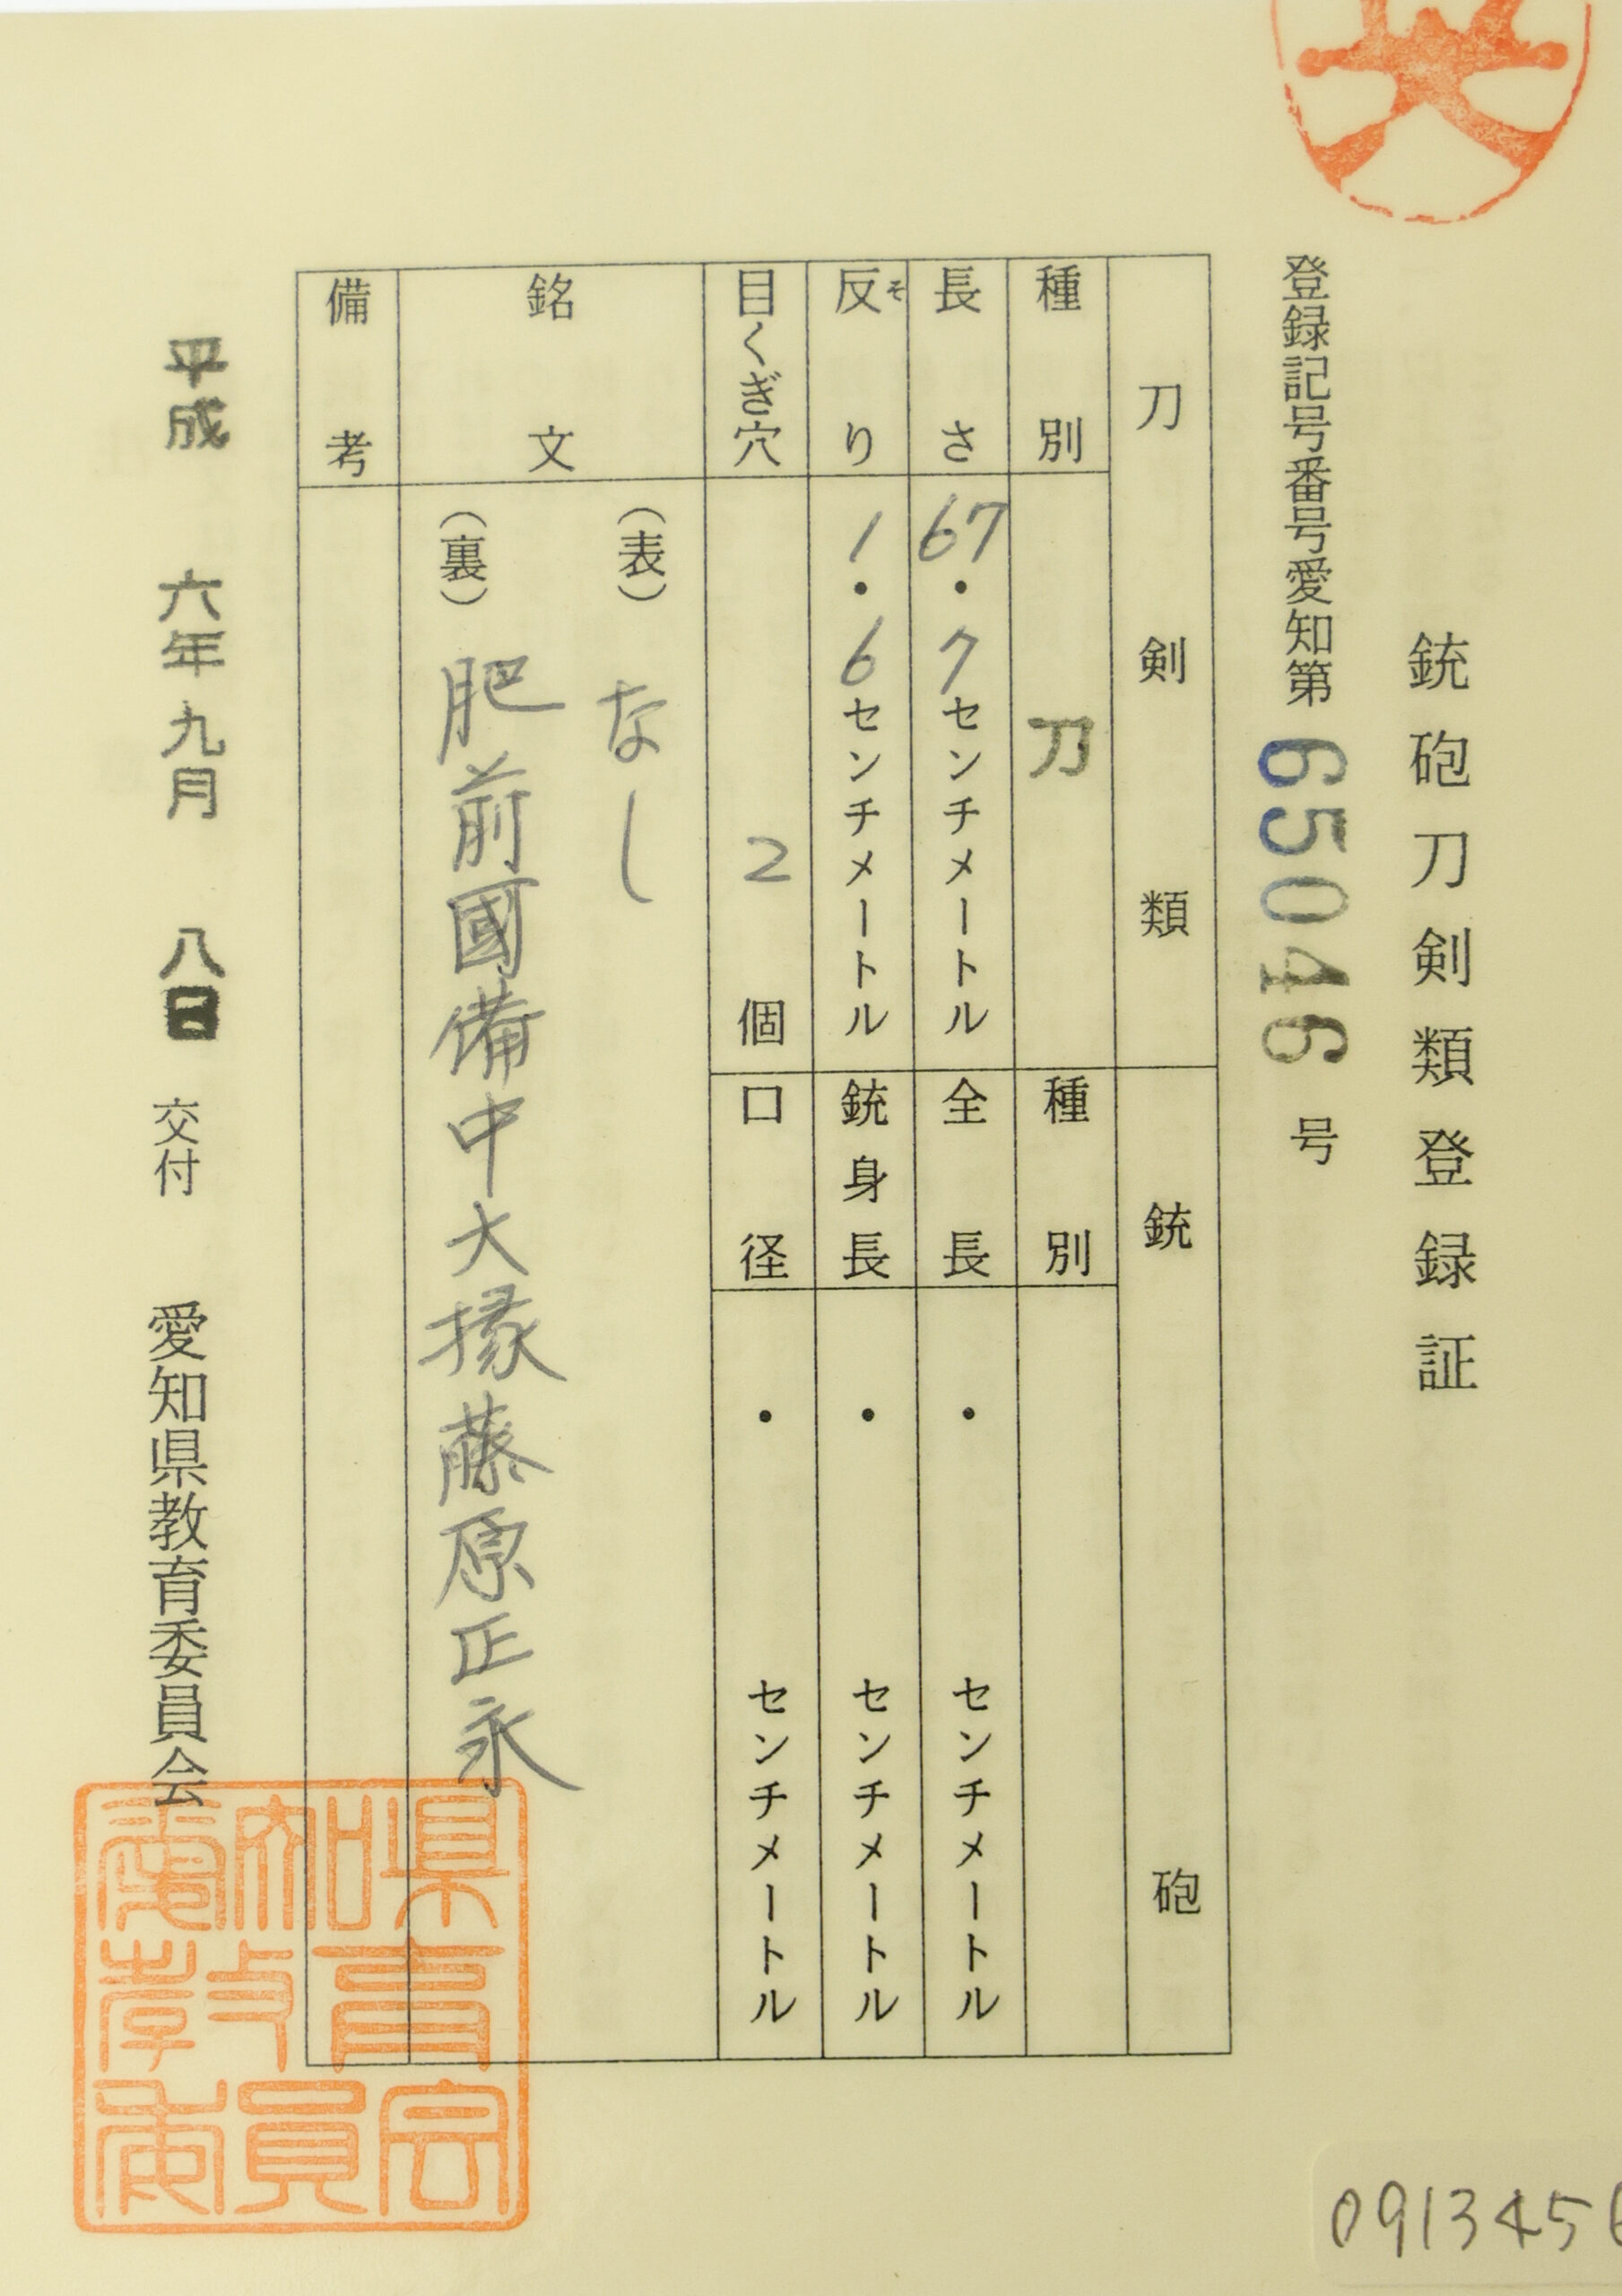 銃砲刀剣類登録証
登録記号番号愛知第65046号
刀剣類
種別 刀
長さ 67・7センチメートル
反り 1・6センチメートル
そ
目くぎ穴 2個
銃砲
種別
全長 ・ センチメートル
銃身長 ・ センチメートル
口径 ・ センチメートル
銘文
(表) なし
(裏) 肥前國備中大掾藤原正永
備考
平成六年九月八日交付 愛知県教育委員会
愛知県
教育
委員会
091345